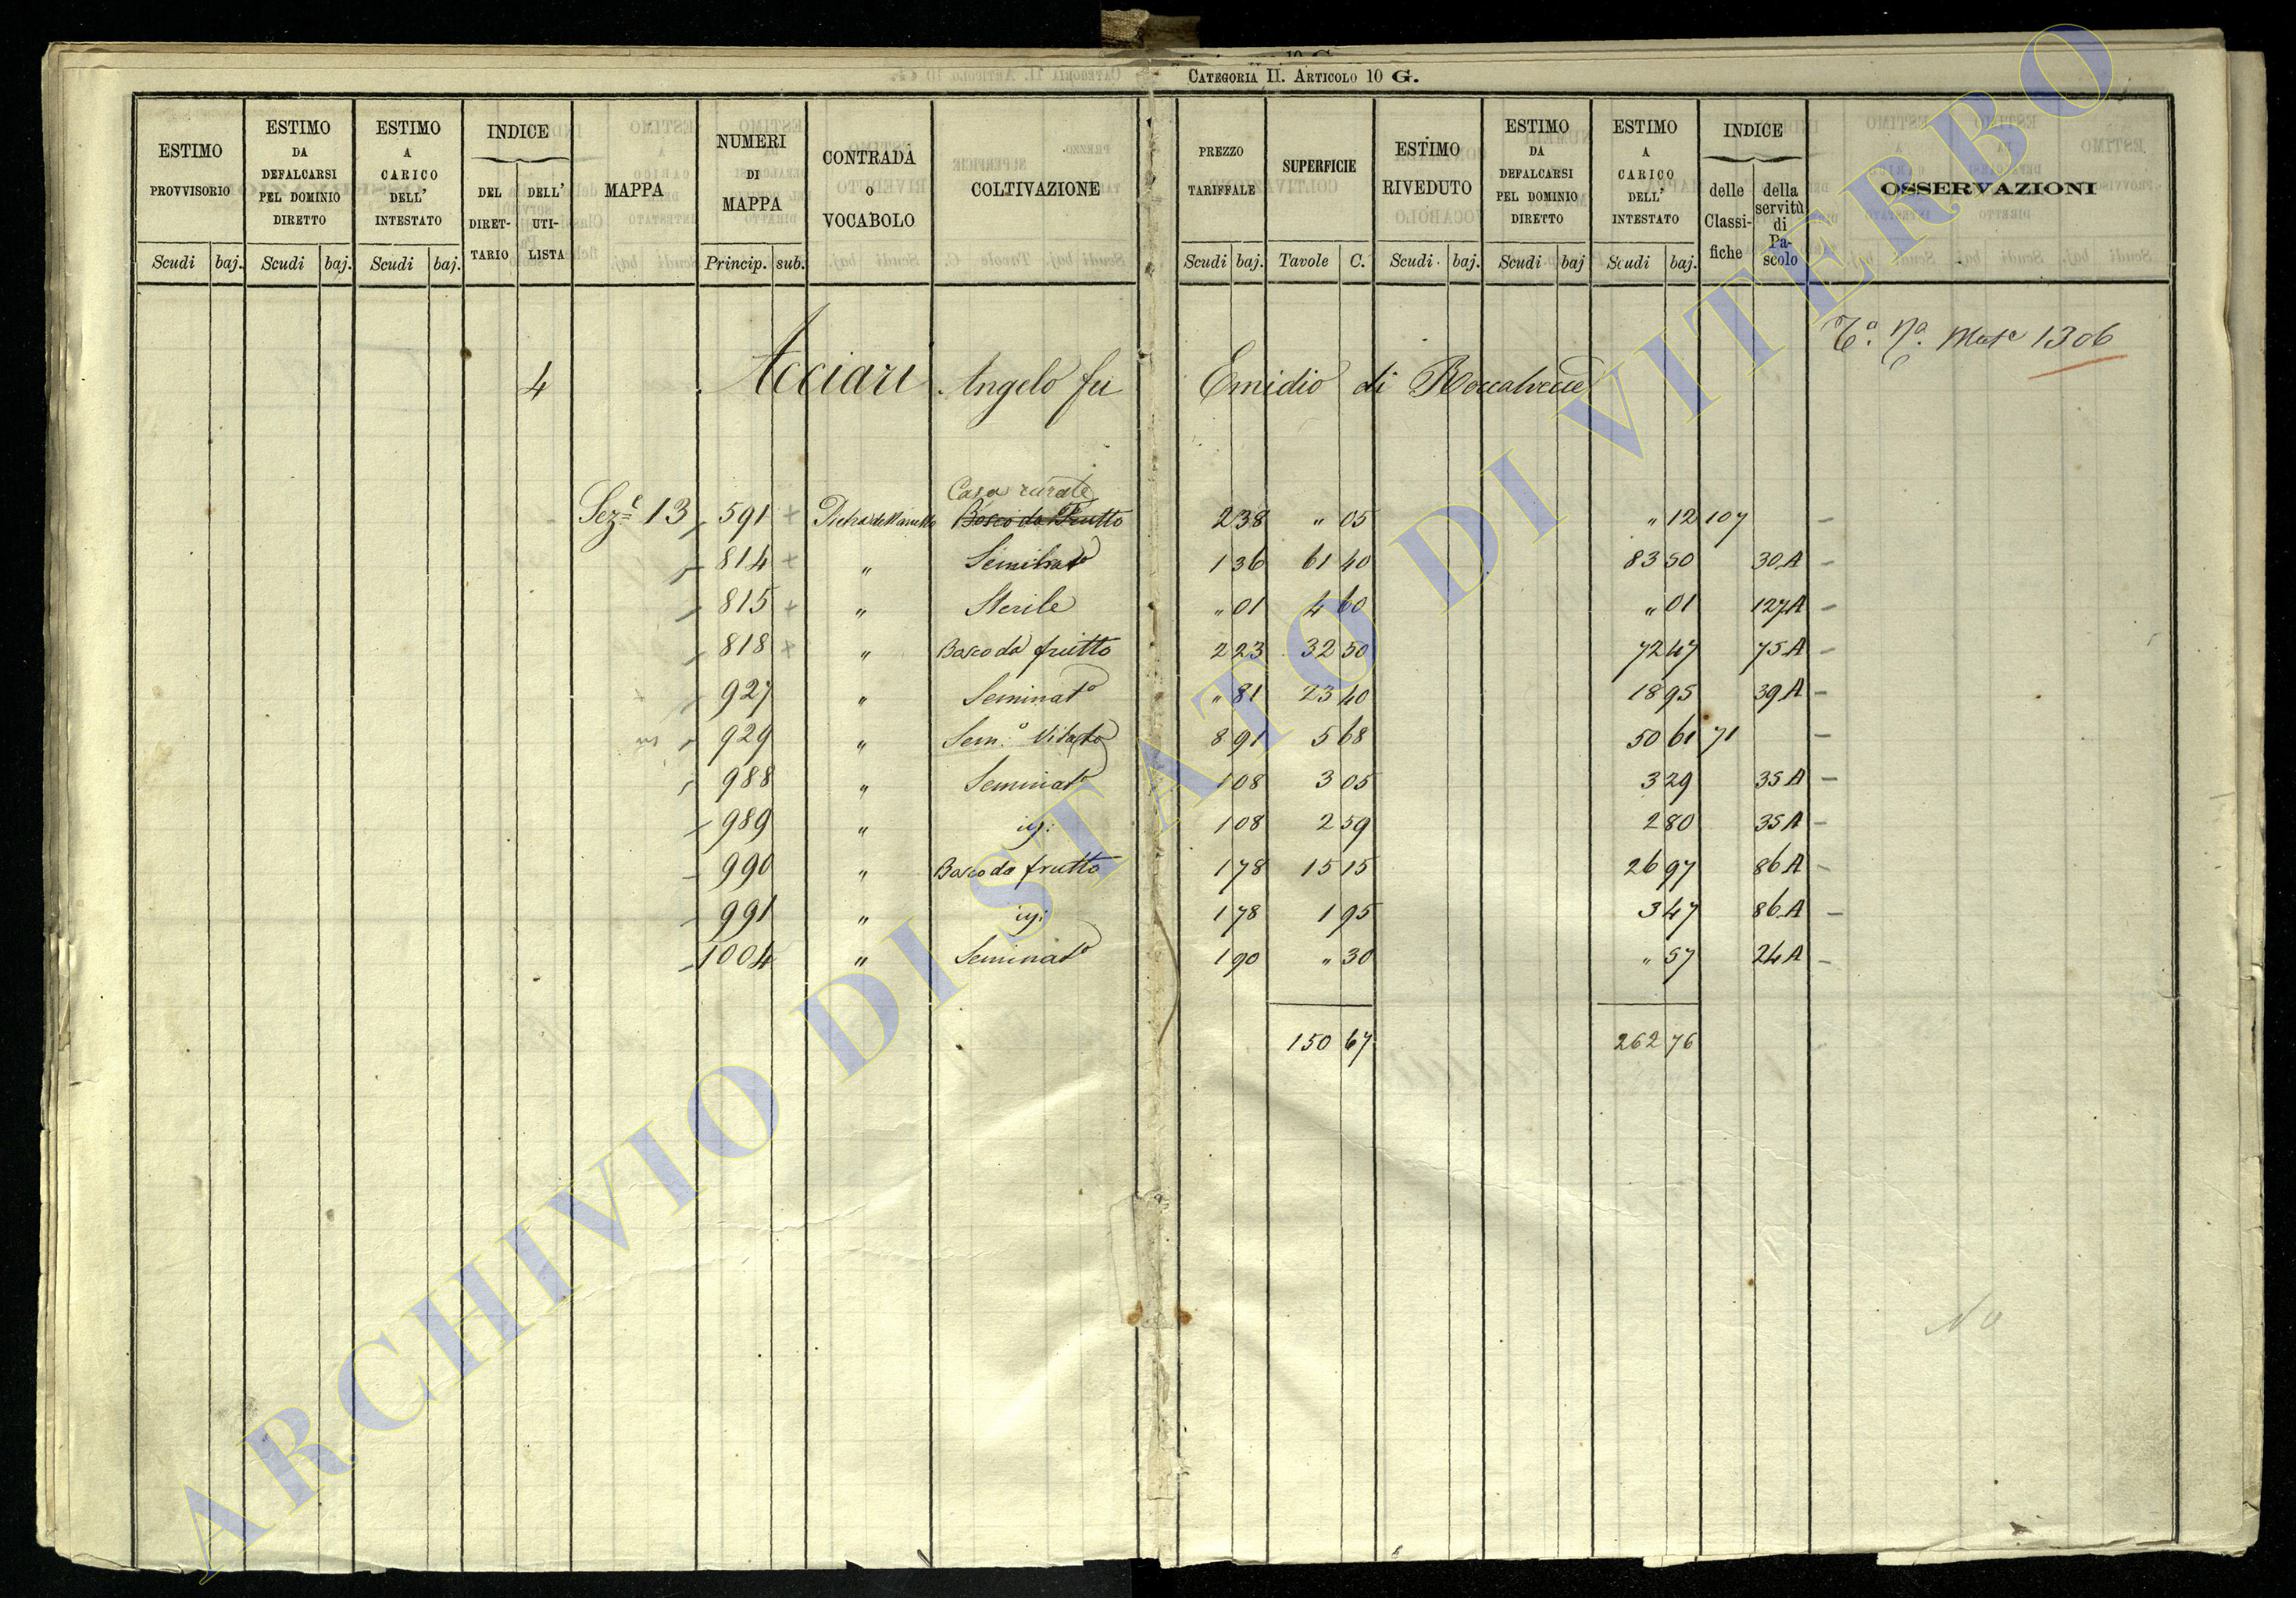 CATEGORIA II. ARTICOLO 10 G.
ESTIMO PROVVISORIO Scudi baj.
ESTIMO DA DEFALCARSI PEL DOMINIO DIRETTO Scudi baj.
ESTIMO A CARICO DELL' INTESTATO Scudi baj.
INDICE DEL DIRETTARIO DELL' UTILISTA
MAPPA
NUMERI DI MAPPA Princip. sub.
CONTRADA O VOCABOLO
COLTIVAZIONE
PREZZO TARIFFALE Scudi baj.
SUPERFICIE Tavole C.
ESTIMO RIVEDUTO Scudi baj.
ESTIMO DA DEFALCARSI PEL DOMINIO DIRETTO Scudi baj
ESTIMO A CARICO DELL' INTESTATO Scudi baj.
INDICE delle Classifiche della servitù di Pascolo
OSSERVAZIONI
1306
4 Acciari Angelo fu Emidio di Roccalvecce
Casa rurale
Sez.e 13 591 + Bosco da Frutto 2 38 " 05 " 12 107 -
814 + " Seminato 1 36 61 40 83 50 30 A -
815 + " Sterile " 01 4 60 " 01 127 A -
818 + " Bosco da frutto 2 23 32 50 72 47 75 A -
927 " Seminato " 81 23 40 18 95 39 A -
929 " Sem.o Vitato 8 91 5 68 50 61 71 -
988 " Seminato 1 08 3 05 3 29 35 A -
989 " id: 1 08 2 59 2 80 35 A -
990 " Bosco da frutto 1 78 15 15 26 97 86 A -
991 " id: 1 78 1 95 3 47 86 A -
1004 " Seminato 1 90 " 30 " 57 24 A -
150 67 262 76
No
ARCHIVIO DI STATO DI VITERBO